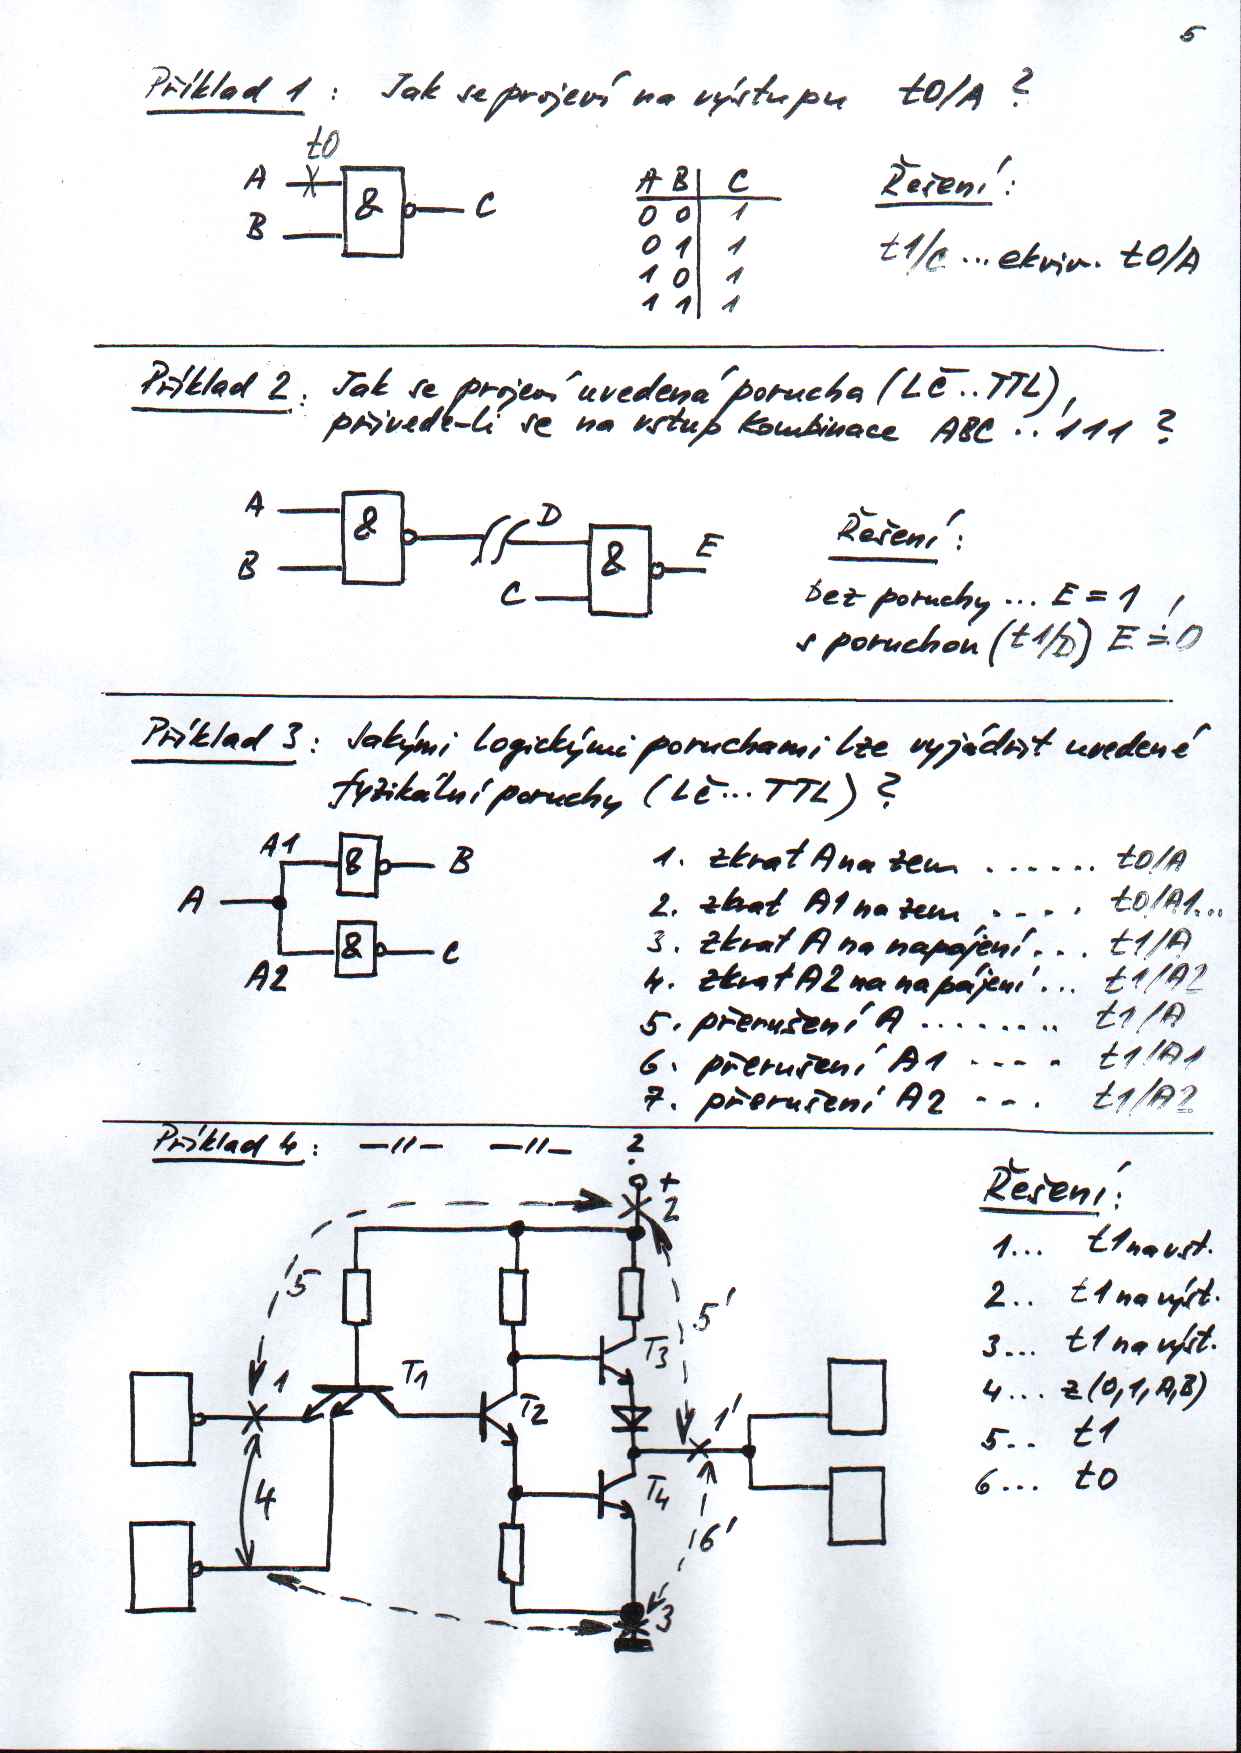 5
Příklad 1 : Jak se projeví na výstupu t0/A ?
t0
A
B
&
C
A B C
0 0 1
0 1 1
1 0 1
1 1 1
Řešení :
t1/C ... ekviv. t0/A
Příklad 2 : Jak se projeví uvedená porucha (LČ..TTL),
přivede-li se na vstup kombinace ABC .. 111 ?
A
B
&
D
C
&
E
Řešení :
bez poruchy ... E = 1
s poruchou (t1/D) E = 0
Příklad 3 : Jakými logickými poruchami lze vyjádřit uvedené
fyzikální poruchy (LČ... TTL) ?
A
A1
A2
&
&
B
C
1. zkrat A na zem ...... t0/A
2. zkrat A1 na zem .... t0/A1...
3. zkrat A na napájení... t1/A
4. zkrat A2 na napájení... t1/A2
5. přerušení A ........ t1/A
6. přerušení A1 .... t1/A1
7. přerušení A2 ... t1/A2
Příklad 4 : —//— —//— ?
+
2
5
5'
1
T1
T2
T3
1'
4
T4
6'
3
Řešení :
1... t1 na vst.
2.. t1 na výst.
3... t1 na výst.
4... z(0,1,A,B)
5.. t1
6... t0